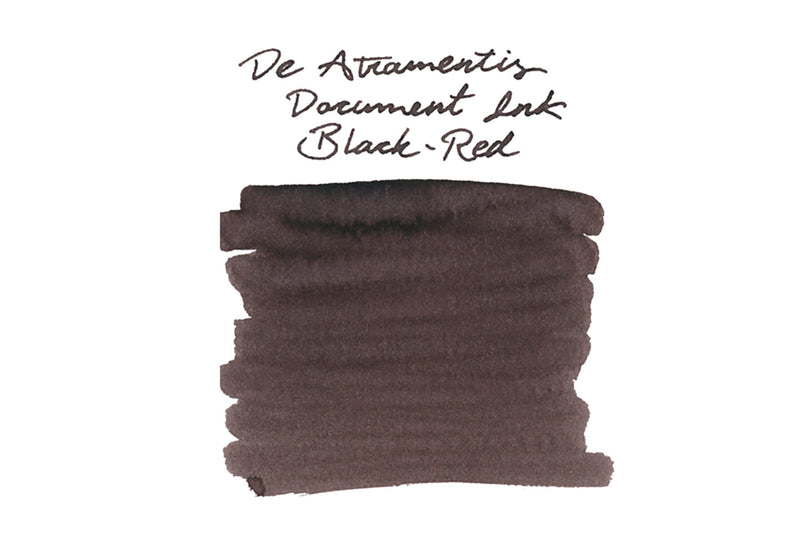 De Atramentis
Document Ink
Black-Red